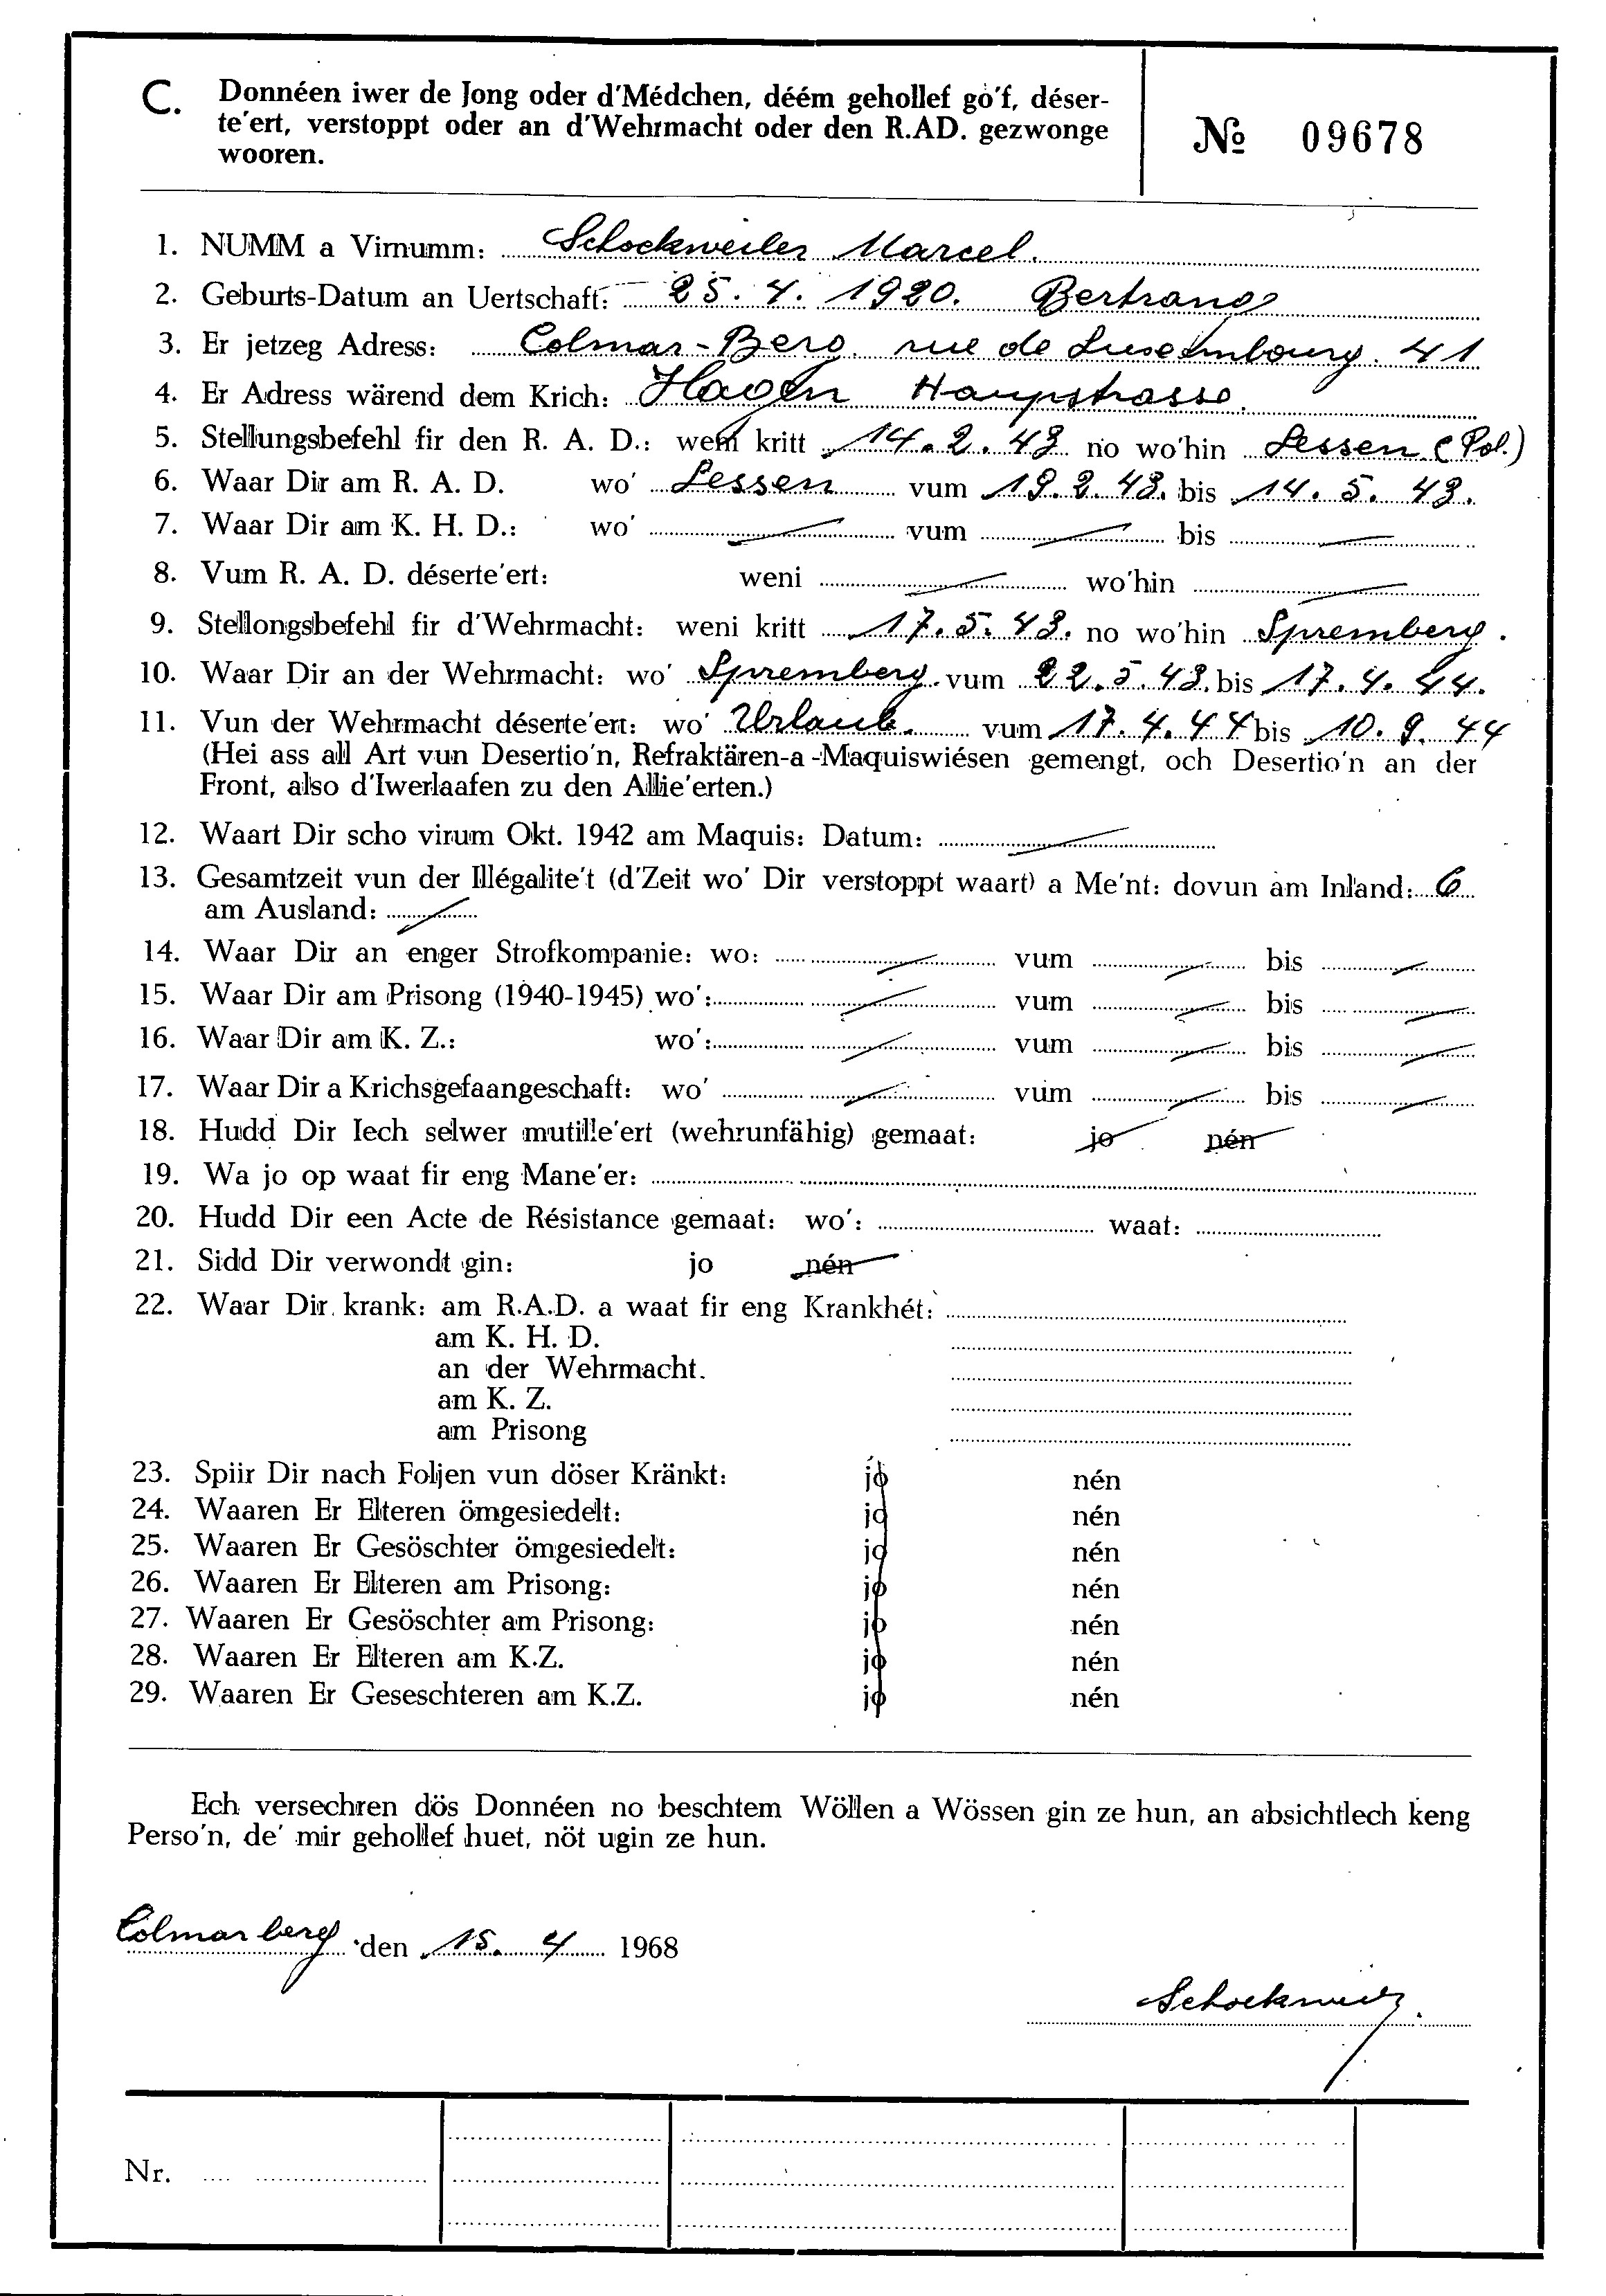 C. Donnéen iwer de Jong oder d'Médchen, déém gehollef go'f, déser-
te'ert, verstoppt oder an d'Wehrmacht oder den R.AD. gezwonge
wooren.
№ 09678
1. NUMM a Virnumm: Schockweiler Marcel.
2. Geburts-Datum an Uertschaft: 25. 4. 1920. Bertrange
3. Er jetzeg Adress: Colmar-Berg. rue de Luxembourg. 41
4. Er Adress wärend dem Krich: Hagen Haupstrasse.
5. Stellungsbefehl fir den R. A. D.: weni kritt 14. 2. 43 no wo'hin Lessen (Pol.)
6. Waar Dir am R. A. D. wo' Lessen vum 19. 2. 43. bis 14. 5. 43.
7. Waar Dir am K. H. D.: wo' vum bis
8. Vum R. A. D. déserte'ert: weni wo'hin
9. Stellongsbefehl fir d'Wehrmacht: weni kritt 17. 5. 43. no wo'hin Spremberg.
10. Waar Dir an der Wehrmacht: wo' Spremberg. vum 22. 5. 43. bis 17. 4. 44.
11. Vun der Wehrmacht déserte'ert: wo' Urlaub. vum 17. 4. 44 bis 10. 9. 44
(Hei ass all Art vun Desertio'n, Refraktären-a -Maquiswiésen gemengt, och Desertio'n an der
Front, also d'Iwerlaafen zu den Allie'erten.)
12. Waart Dir scho virum Okt. 1942 am Maquis: Datum:
13. Gesamtzeit vun der Illégalite't (d'Zeit wo' Dir verstoppt waart) a Me'nt: dovun am Inland: 6
am Ausland:
14. Waar Dir an enger Strofkompanie: wo: vum bis
15. Waar Dir am Prisong (1940-1945) wo': vum bis
16. Waar Dir am K. Z.: wo': vum bis
17. Waar Dir a Krichsgefaangeschaft: wo' vum bis
18. Hudd Dir Iech selwer mutille'ert (wehrunfähig) gemaat: jo nén
19. Wa jo op waat fir eng Mane'er:
20. Hudd Dir een Acte de Résistance gemaat: wo': waat:
21. Sidd Dir verwondt gin: jo nén
22. Waar Dir krank: am R.A.D. a waat fir eng Krankhét:
am K. H. D.
an der Wehrmacht.
am K. Z.
am Prisong
23. Spiir Dir nach Foljen vun döser Kränkt: jo nén
24. Waaren Er Elteren ömgesiedelt: jo nén
25. Waaren Er Gesöschter ömgesiedelt: jo nén
26. Waaren Er Elteren am Prisong: jo nén
27. Waaren Er Gesöschter am Prisong: jo nén
28. Waaren Er Elteren am K.Z. jo nén
29. Waaren Er Geseschteren am K.Z. jo nén
Ech versechren dös Donnéen no beschtem Wöllen a Wössen gin ze hun, an absichtlech keng
Perso'n, de' mir gehollef huet, nöt ugin ze hun.
Colmarberg den 15. 4 1968
Schockweiler
Nr.